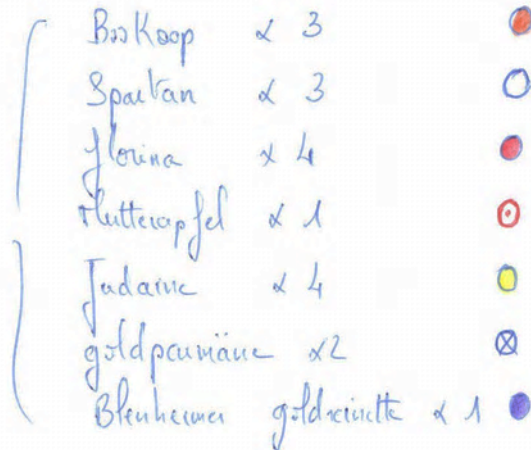 Boskoop x 3
Spartan x 3
florina x 4
x 1
Judaine x 4
goldparmäne x2
Blenheimer goldreinette x 1